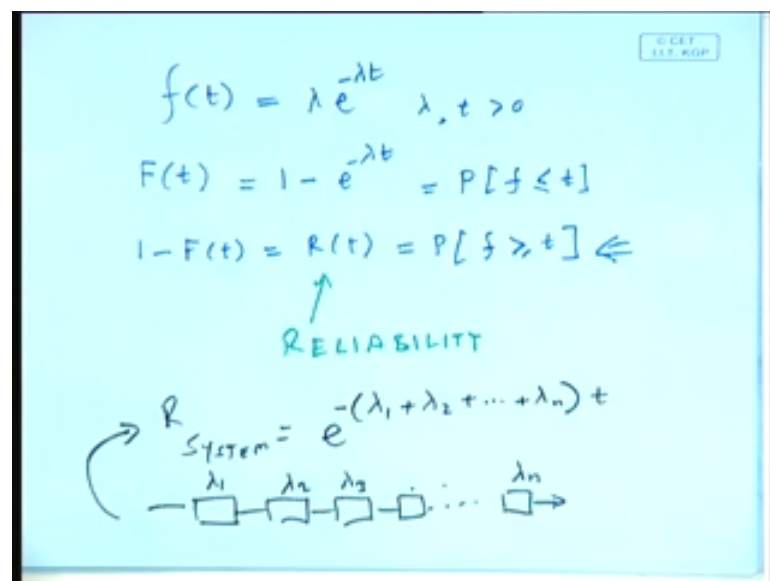 © CET
I.I.T. KGP
f(t) = λe^{-λt} λ, t > 0
F(t) = 1 - e^{-λt} = P[f ≤ t]
1 - F(t) = R(t) = P[f ≥ t] ⇐
↑
RELIABILITY
R_{SYSTEM} = e^{-(λ₁ + λ₂ + ... + λₙ) t}
λ₁ λ₂ λ₃ .... λₙ